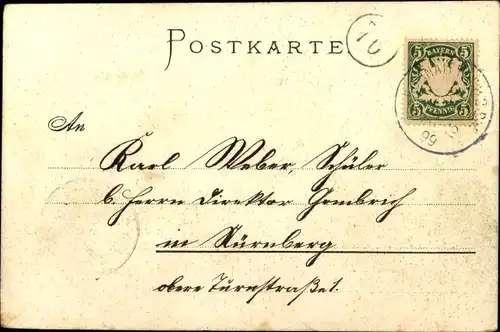 POSTKARTE
10
5 BAYERN 5
5 PFENNIG 5
99
An
Karl Weber, Schüler
b. Herrn Direktor Gombrich
in Nürnberg
obere Turnstraße 1.